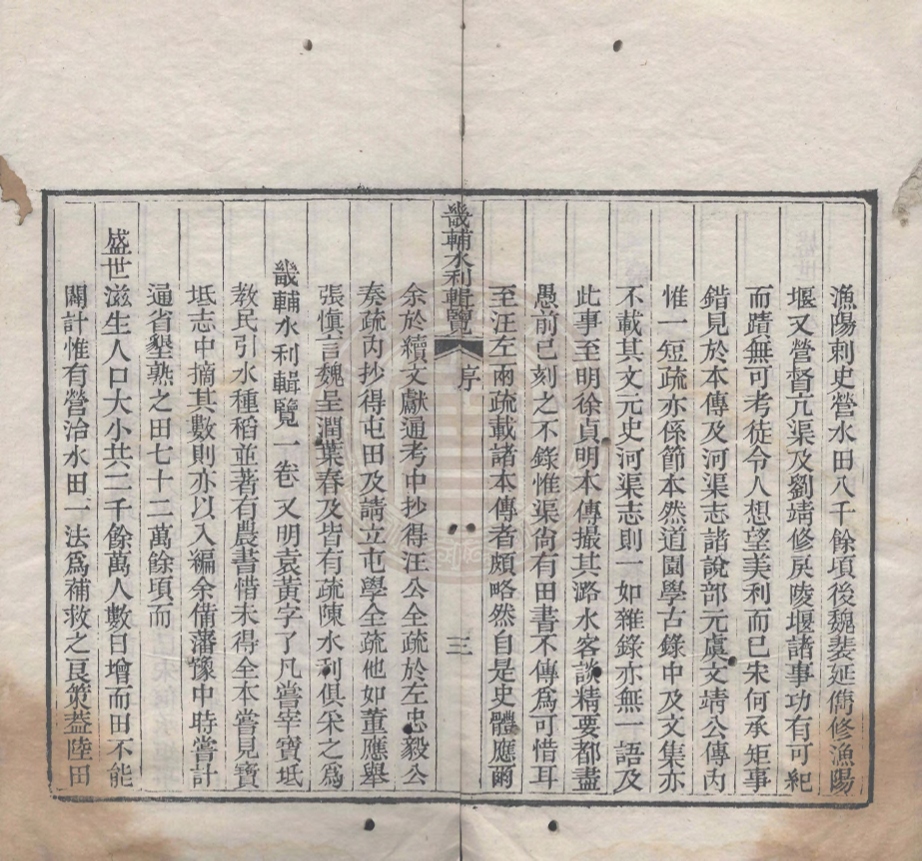 漁陽刺史營水田八千餘頃後魏裴延儁修漁陽
堰又營督亢渠及劉靖修戾陵堰諸事功有可紀
而蹟無可考徒令人想望美利而已宋何承矩事
錯見於本傳及河渠志諸說部元虞文靖公傳內
惟一短疏亦係節本然道園學古錄中及文集亦
不載其文元史河渠志則一如雜錄亦無一語及
此事至明徐貞明本傳撮其潞水客談精要都盡
愚前已刻之不錄惟渠尙有田書不傳爲可惜耳
至汪左兩疏載諸本傳者頗略然自是史體應爾
畿輔水利輯覽 序 三
余於續文獻通考中抄得汪公全疏於左忠毅公
奏疏內抄得屯田及請立屯學全疏他如董應舉
張愼言魏呈潤葉春及皆有疏陳水利俱采之爲
畿輔水利輯覽一卷又明袁黃字了凡嘗宰寶坻
教民引水種稻並著有農書惜未得全本嘗見寶
坻志中摘其數則亦以入編余備藩豫中時嘗計
通省墾熟之田七十二萬餘頃而
盛世滋生人口大小共二千餘萬人數日增而田不能
闢計惟有營治水田一法爲補救之良策葢陸田